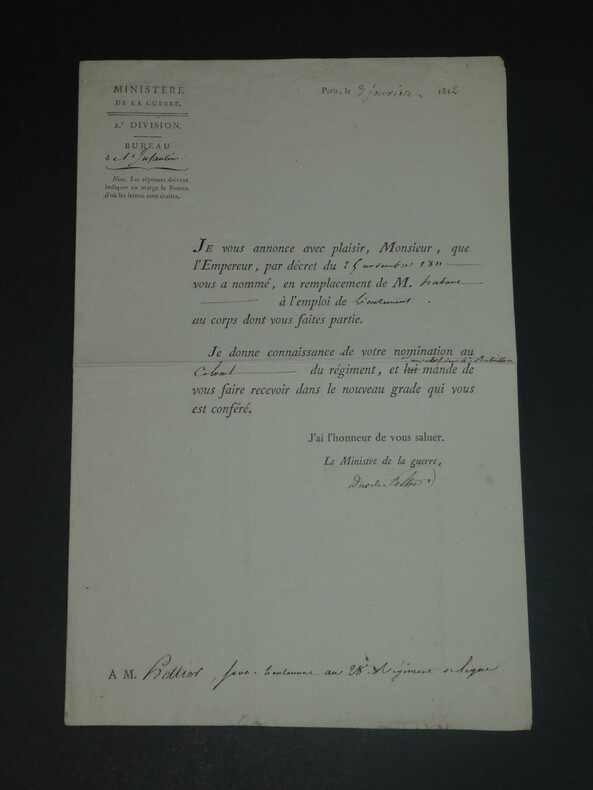 MINISTÈRE
DE LA GUERRE.
2.e DIVISION.
BUREAU
de l'Infanterie
Nota. Les réponses doivent
indiquer en marge le Bureau
d'où les lettres sont écrites.
Paris, le 9 janvier 1812
JE vous annonce avec plaisir, Monsieur, que
l'Empereur, par décret du 25 novembre 1811
vous a nommé, en remplacement de M.
à l'emploi de lieutenant.
au corps dont vous faites partie.
Je donne connaissance de votre nomination au
du régiment, et lui mande de
vous faire recevoir dans le nouveau grade qui vous
est conféré.
J'ai l'honneur de vous saluer.
Le Ministre de la guerre,
Duc de Feltre
A M. sous-lieutenant au 28e Régiment de ligne